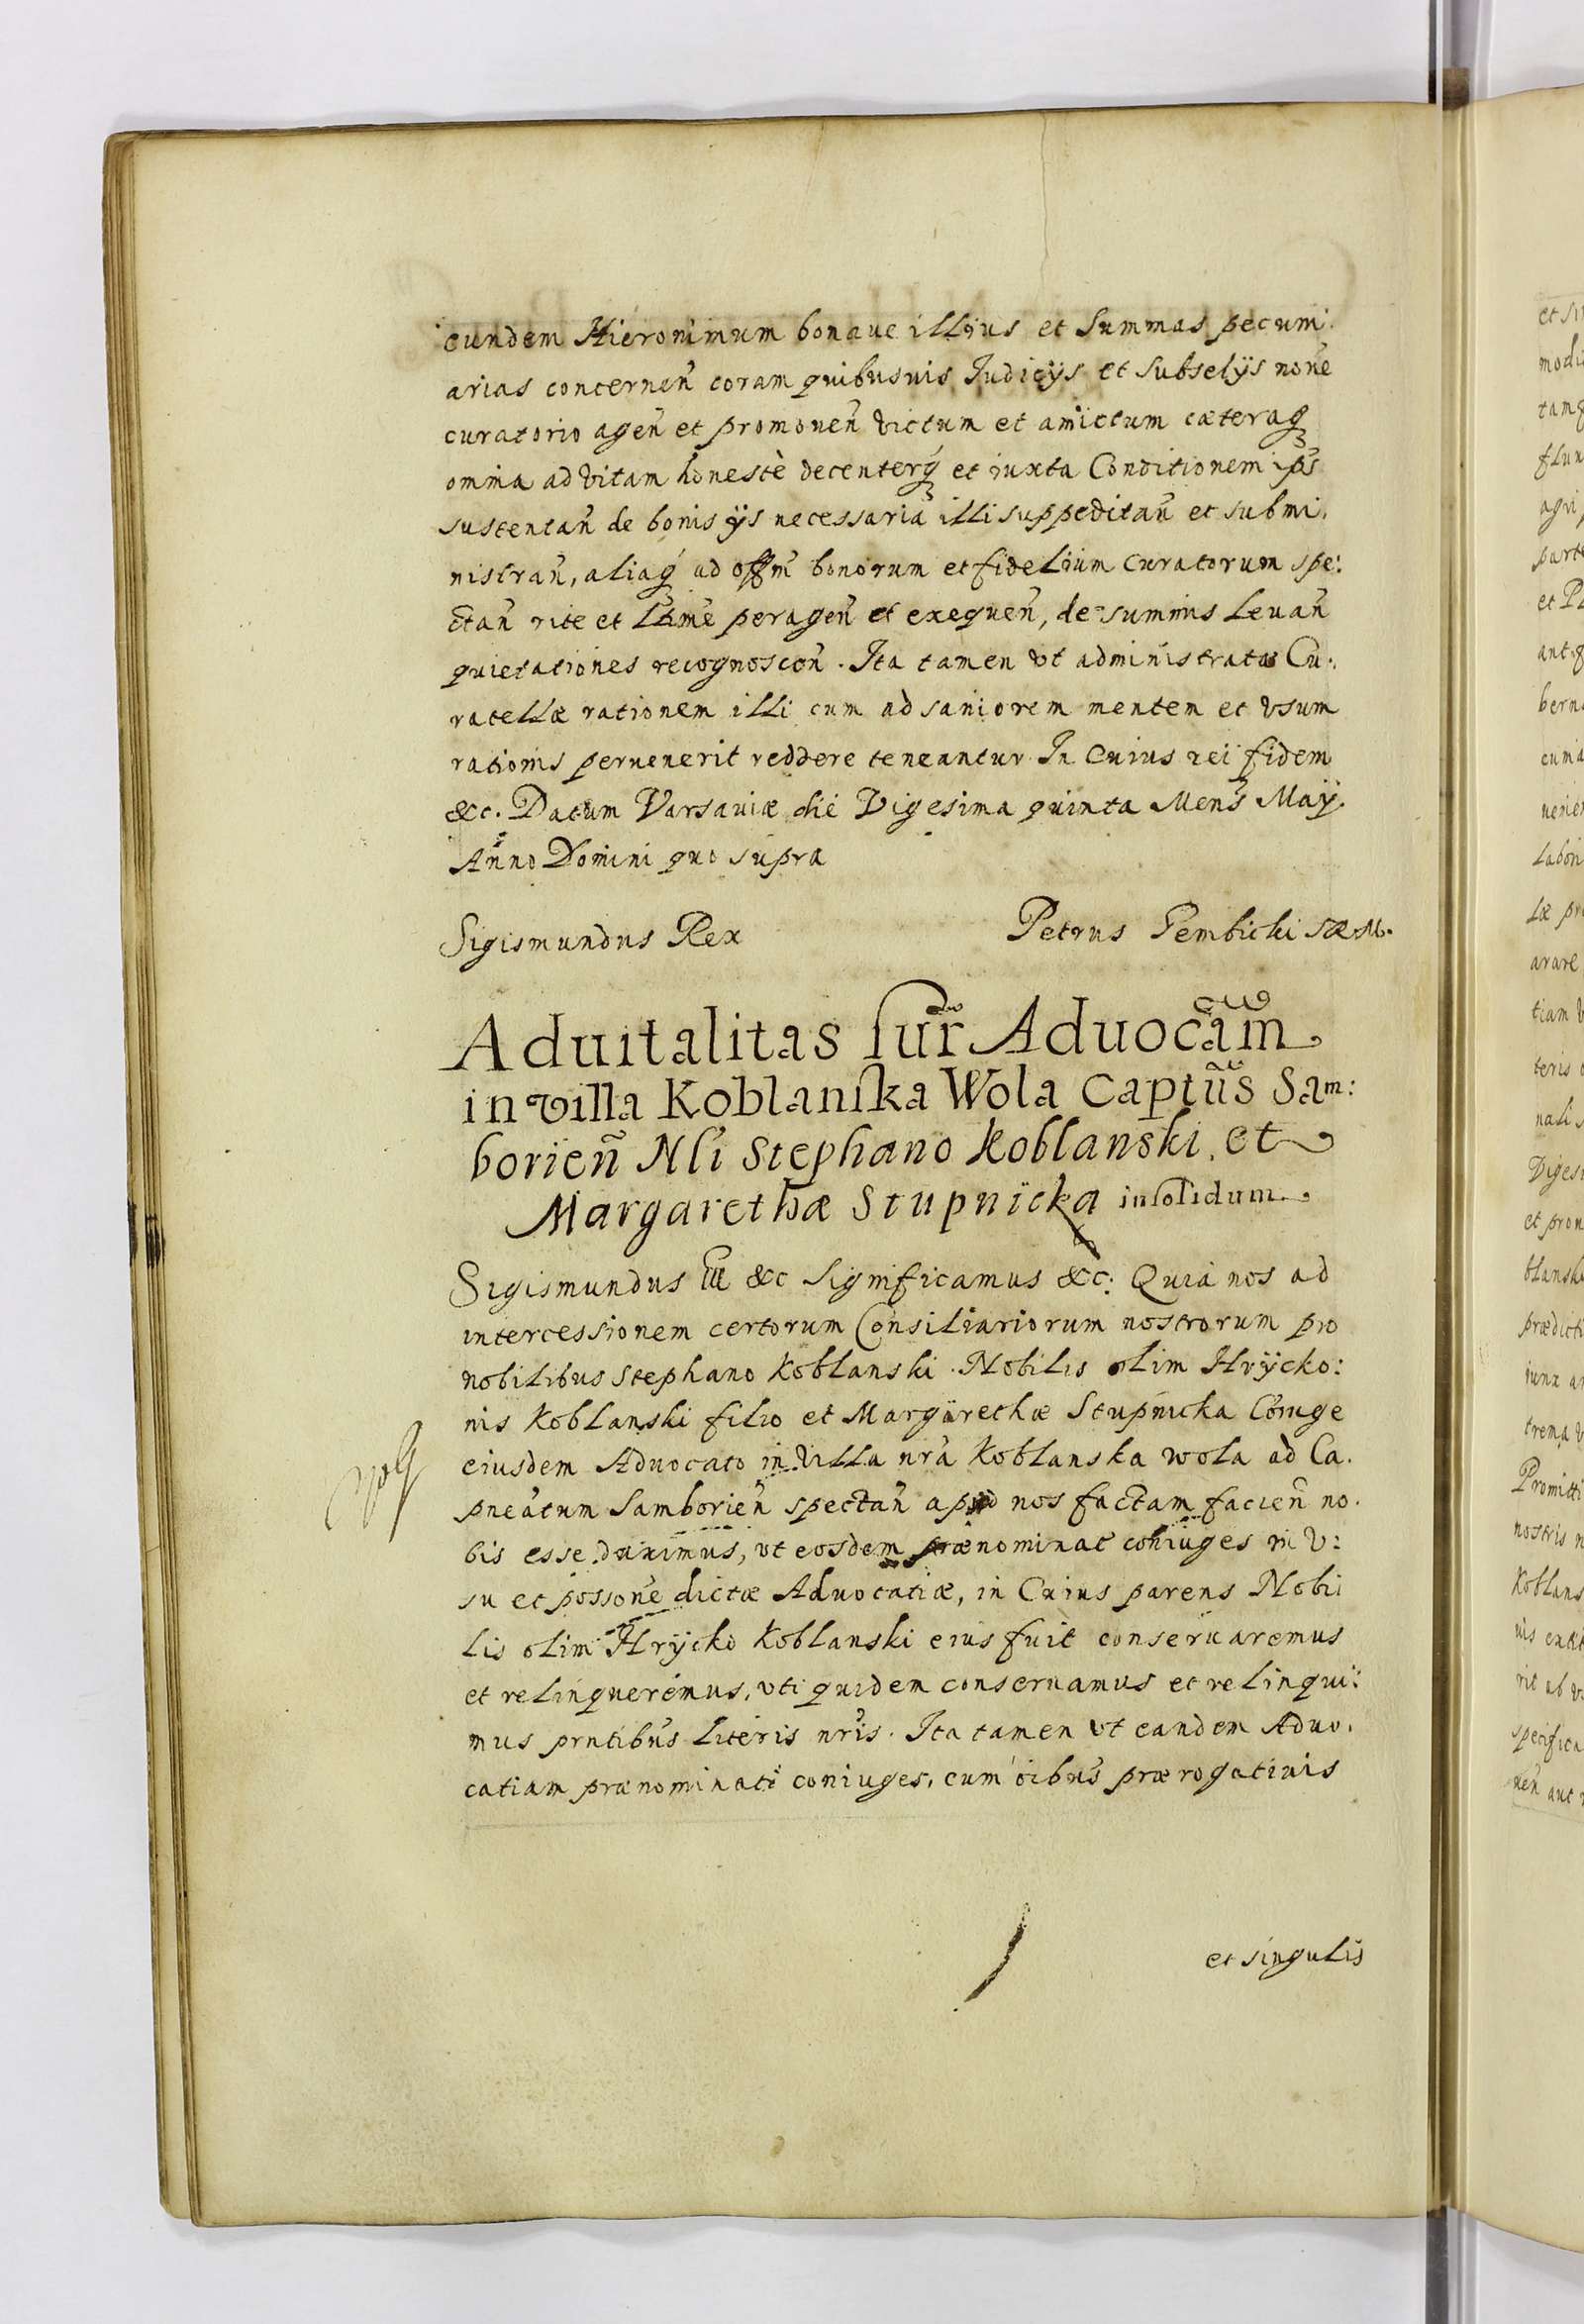 eundem Hieronimum bonaue illius et summas pecuni.
arias concernen̄ coram quibusuis Iudicijs et subselijs noñe
curatorio agen̄ et promouen̄ victum et amictum cæteraq́
omnia ad vitam honestè decenterq́ et iuxta Conditionem ip̄s
sustentan̄ de bonis ijs necessaria illi suppeditan̄ et submi.
nistran̄, aliaq́ ad offm̄ bonorum et fidelium curatorum spe:
ctan̄ rite et lt̄ime peragen̄ et exequen̄, de summis leuan̄
quietationes recognoscen̄. Ita tamen vt administratæ Cu.
ratellæ rationem illi cum ad saniorem mentem et vsum
rationis peruenerit reddere teneantur. In Cuius rei fidem
&c. Datum Varsauiæ die Vigesima quinta Mens̄ Maij.
Anno Domini quo supra
Sigismundus Rex
Petrus Gembicki
Aduitalitas sup̄r Aduocām
in villa Koblanska Wola Captūs Sam:
borien̄ Nli Stephano Koblanski, et
Margarethæ Stupnicka insolidum.
Sigismundus III &c Significamus &c: Quia nos ad
intercessionem certorum Consiliariorum nostrorum pro
nobilibus Stephano Koblanski. Nobilis olim Hrÿcko:
nis Koblanski filio et Margarethæ Stupnicka Cōniuge
eiusdem Aduocato in Villa nrā Koblanska wola ad Ca.
pneātum Samborien̄ spectan̄ apud nos factam facien̄ no.
bis esse duximus, vt eosdem prænominat̄ coniuges in v:
su et possone̅ dictæ Aduocatiæ, in Cuius parens Nobi
lis olim Hrÿcko Koblanski eius fuit conseruaremus
et relinqueremus, vti quidem conseruamus et relinqui:
mus prntibūs literis nrīs. Ita tamen vt eandem Aduo.
catiam prænominati coniuges, cum oībus prærogatiuis
et singulis